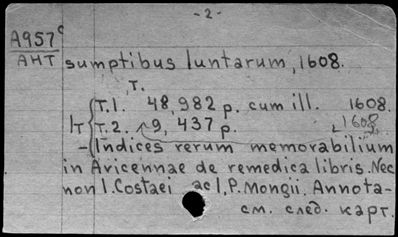 - 2 -
А957с
АНТ
sumptibus luntarum, 1608.
т.
Т.1. 48, 982 p. cum ill. 1608.
1т
Т.2. 9, 437 p. 1608.
- Indices rerum memorabilium
in Avicennae de remedica libris. Nec
non I. Costaei ac I, P. Mongii. Annota-
см. след. карт.